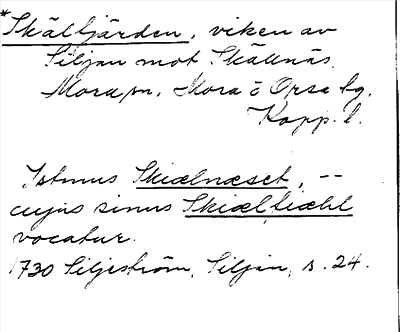 *Skälfjärden, viken av
Siljan mot Skällnäs.
Mora sn, Mora o Orsa tg,
Kopp. l.
Istmus Skiælnæset, --
cujus sinus Skiælfiæhl
vocatur.
1730 Siljeström, Siljan, s. 24.